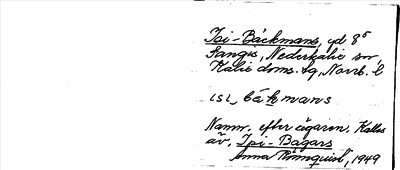 Ipi-Bäckmans, yd 8⁵
Sangis, Nederkalix sn,
Kalix doms. sg, Norrb. l
ɪsɪ, bákmans
Namn. efter ägaren. Kallas
äv. Ipi-Bägars
Anna Rönnquist, 1949